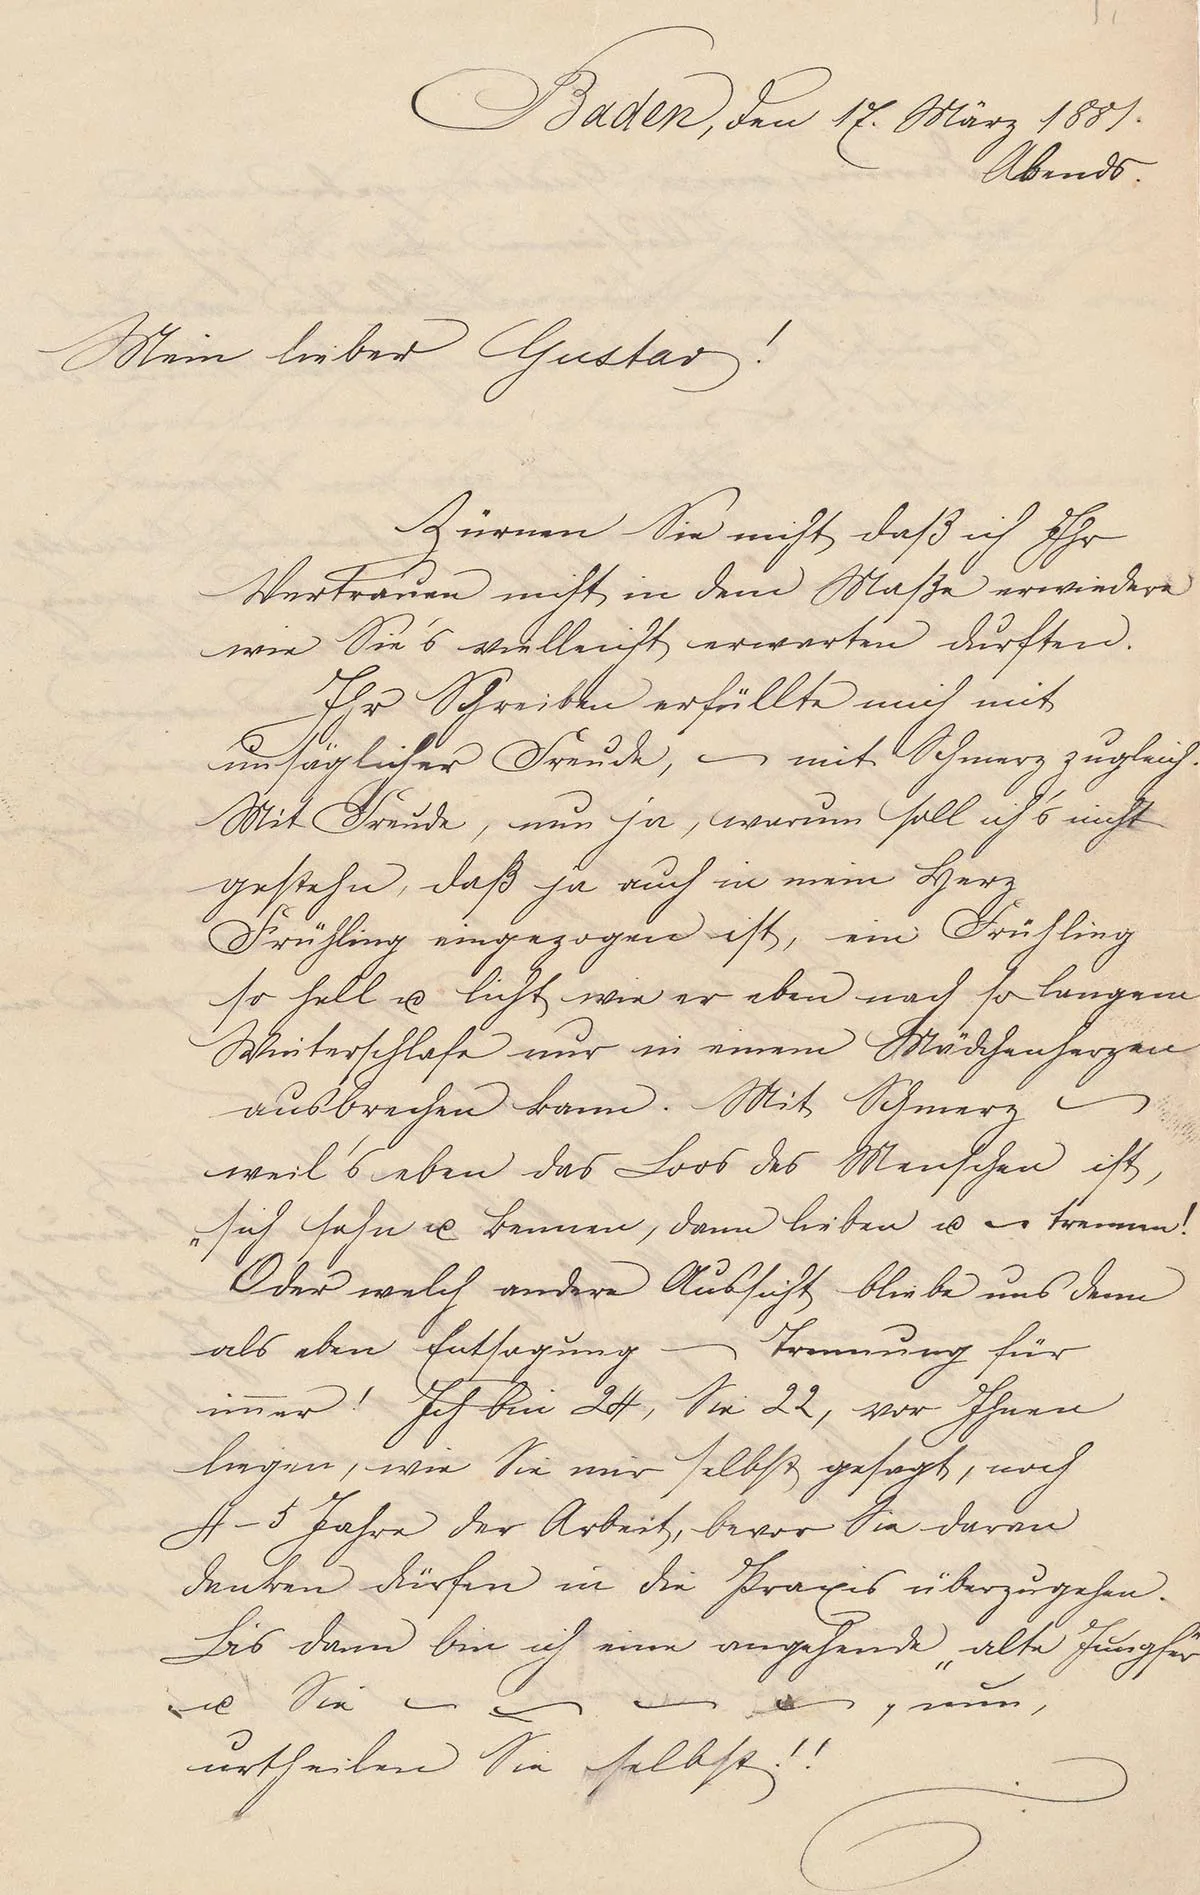 Baden, den 17. März 1881.
Abends.
Mein lieber Gustav!
Zürnen Sie nicht daß ich Ihr
Vertrauen nicht in dem Maße erwiedere
wie Sie's vielleicht erwarten durften.
Ihr Schreiben erfüllte mich mit
unsäglicher Freude, — mit Schmerz zugleich.
Mit Freude, nun ja, warum soll ich's nicht
gestehn, daß ja auch in mein Herz
Frühling eingezogen ist, ein Frühling
so hell u licht wie er eben nach so langem
Winterschlafe nur in einem Mädchenherzen
ausbrechen kann. Mit Schmerz —
weil's eben das Loos des Menschen ist,
„sich sehn u kennen, dann lieben u — trennen!
Oder welch andere Aussicht bliebe uns denn
als eben Entsagung — Trennung für
im̅er! Ich bin 24, Sie 22, vor Ihnen
liegen, wie Sie mir selbst gesagt, noch
4–5 Jahre der Arbeit, bevor Sie daran
denken dürfen in die Praxis überzugehen.
Bis dann bin ich eine angehende „alte Jungfer"
u Sie — — — — , nun,
urtheilen Sie selbst!!